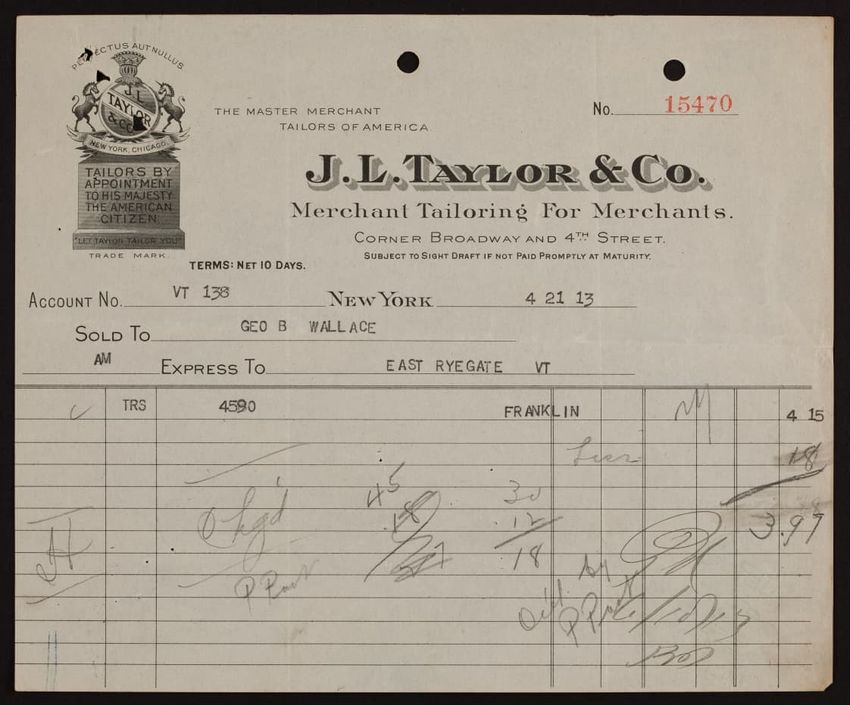 PERFECTUS AUT NULLUS
J.L. TAYLOR & CO.
NEW YORK, CHICAGO.
TAILORS BY
APPOINTMENT
TO HIS MAJESTY
THE AMERICAN
CITIZEN
"LET TAYLOR TAILOR YOU"
TRADE MARK.
THE MASTER MERCHANT
TAILORS OF AMERICA.
No. 15470
J.L. TAYLOR & Co.
Merchant Tailoring For Merchants.
CORNER BROADWAY AND 4TH STREET.
TERMS: NET 10 DAYS.
SUBJECT TO SIGHT DRAFT IF NOT PAID PROMPTLY AT MATURITY.
ACCOUNT NO. VT 138 NEW YORK 4 21 13
SOLD TO GEO B WALLACE
AM EXPRESS TO EAST RYEGATE VT
TRS 4590 FRANKLIN 4 15
Less 18
45 30
Chg'd 18 .12 3.97
18
by
P Post